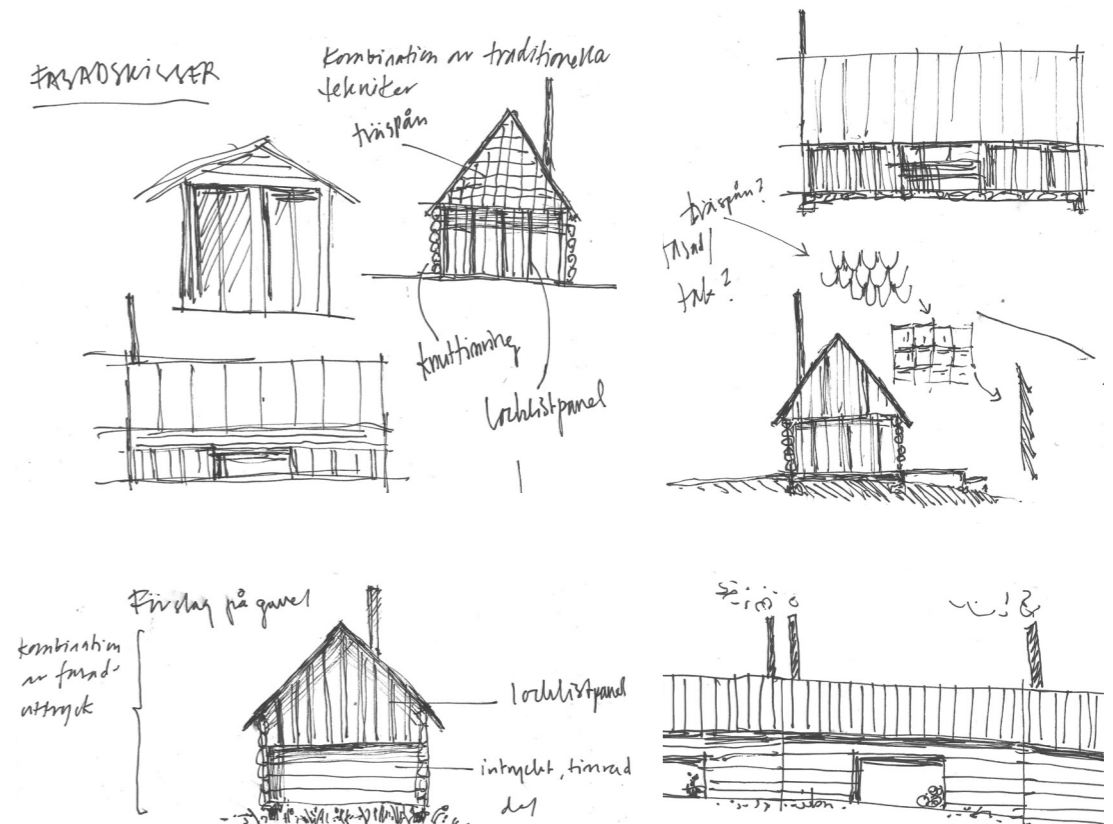 FASADSKISSER
Kombination av traditionella
tekniker
träspån
knuttimring
locklistpanel
träspån?
fasad/
tak?
Förslag på gavel
kombination
av fasad-
uttryck
locklistpanel
intryckt, timrad
del